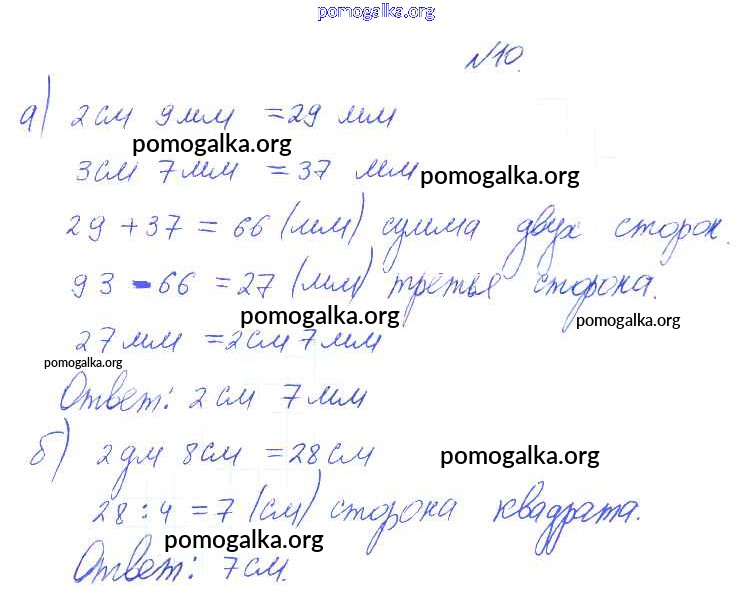 pomogalka.org
№10.
а) 2см 9мм = 29 мм
pomogalka.org
3см 7мм = 37 мм
pomogalka.org
29 + 37 = 66 (мм) сумма двух сторон.
93 - 66 = 27 (мм) третья сторона.
pomogalka.org
pomogalka.org
27мм = 2см 7мм
pomogalka.org
Ответ: 2 см 7мм
б) 2дм 8см = 28см
pomogalka.org
28 : 4 = 7 (см) сторона квадрата.
pomogalka.org
Ответ: 7см.